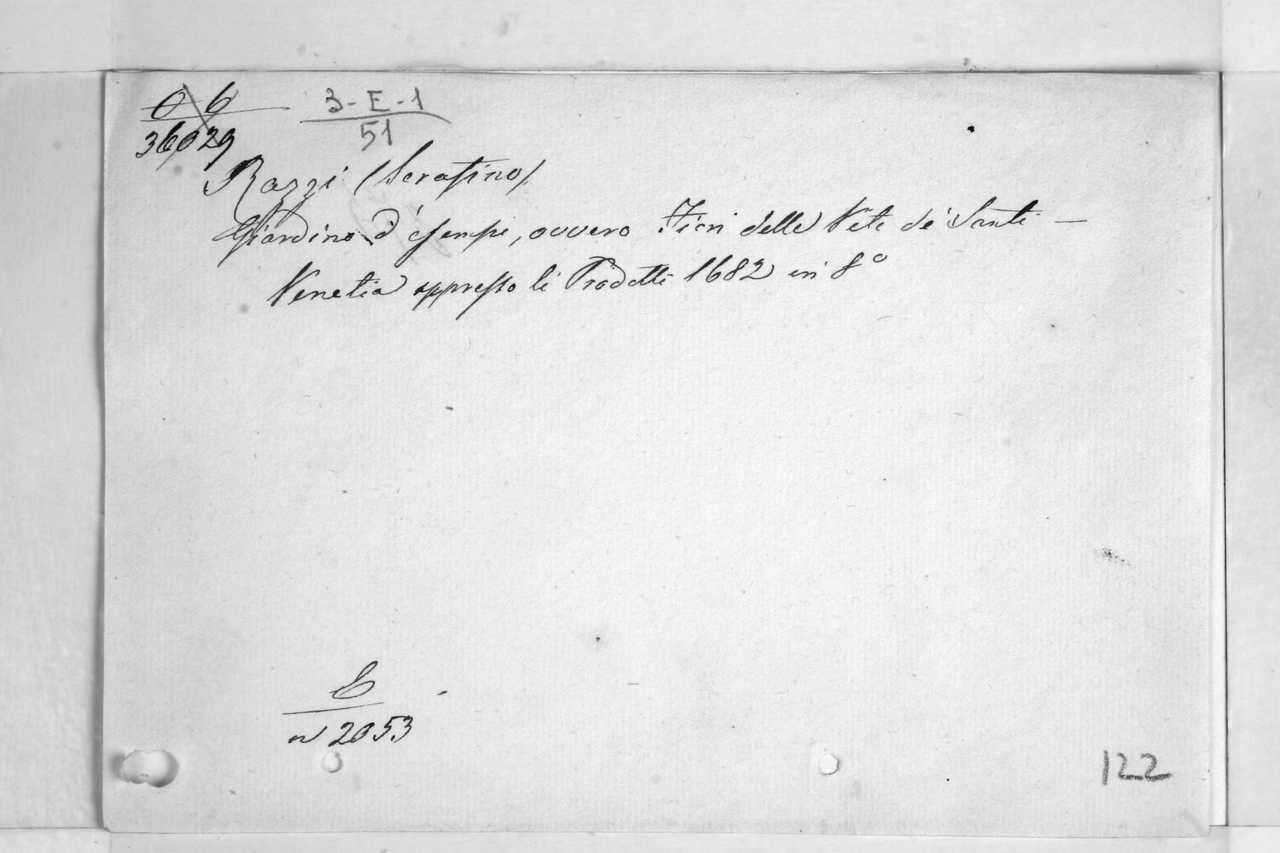 O 6 3-E-1
36029 51
Razzi (Serafino)
Giardino d'esempi, ovvero Fiori delle Vite de' Santi —
Venetia appresso li Prodotti 1682 in 8º
n 2053
122